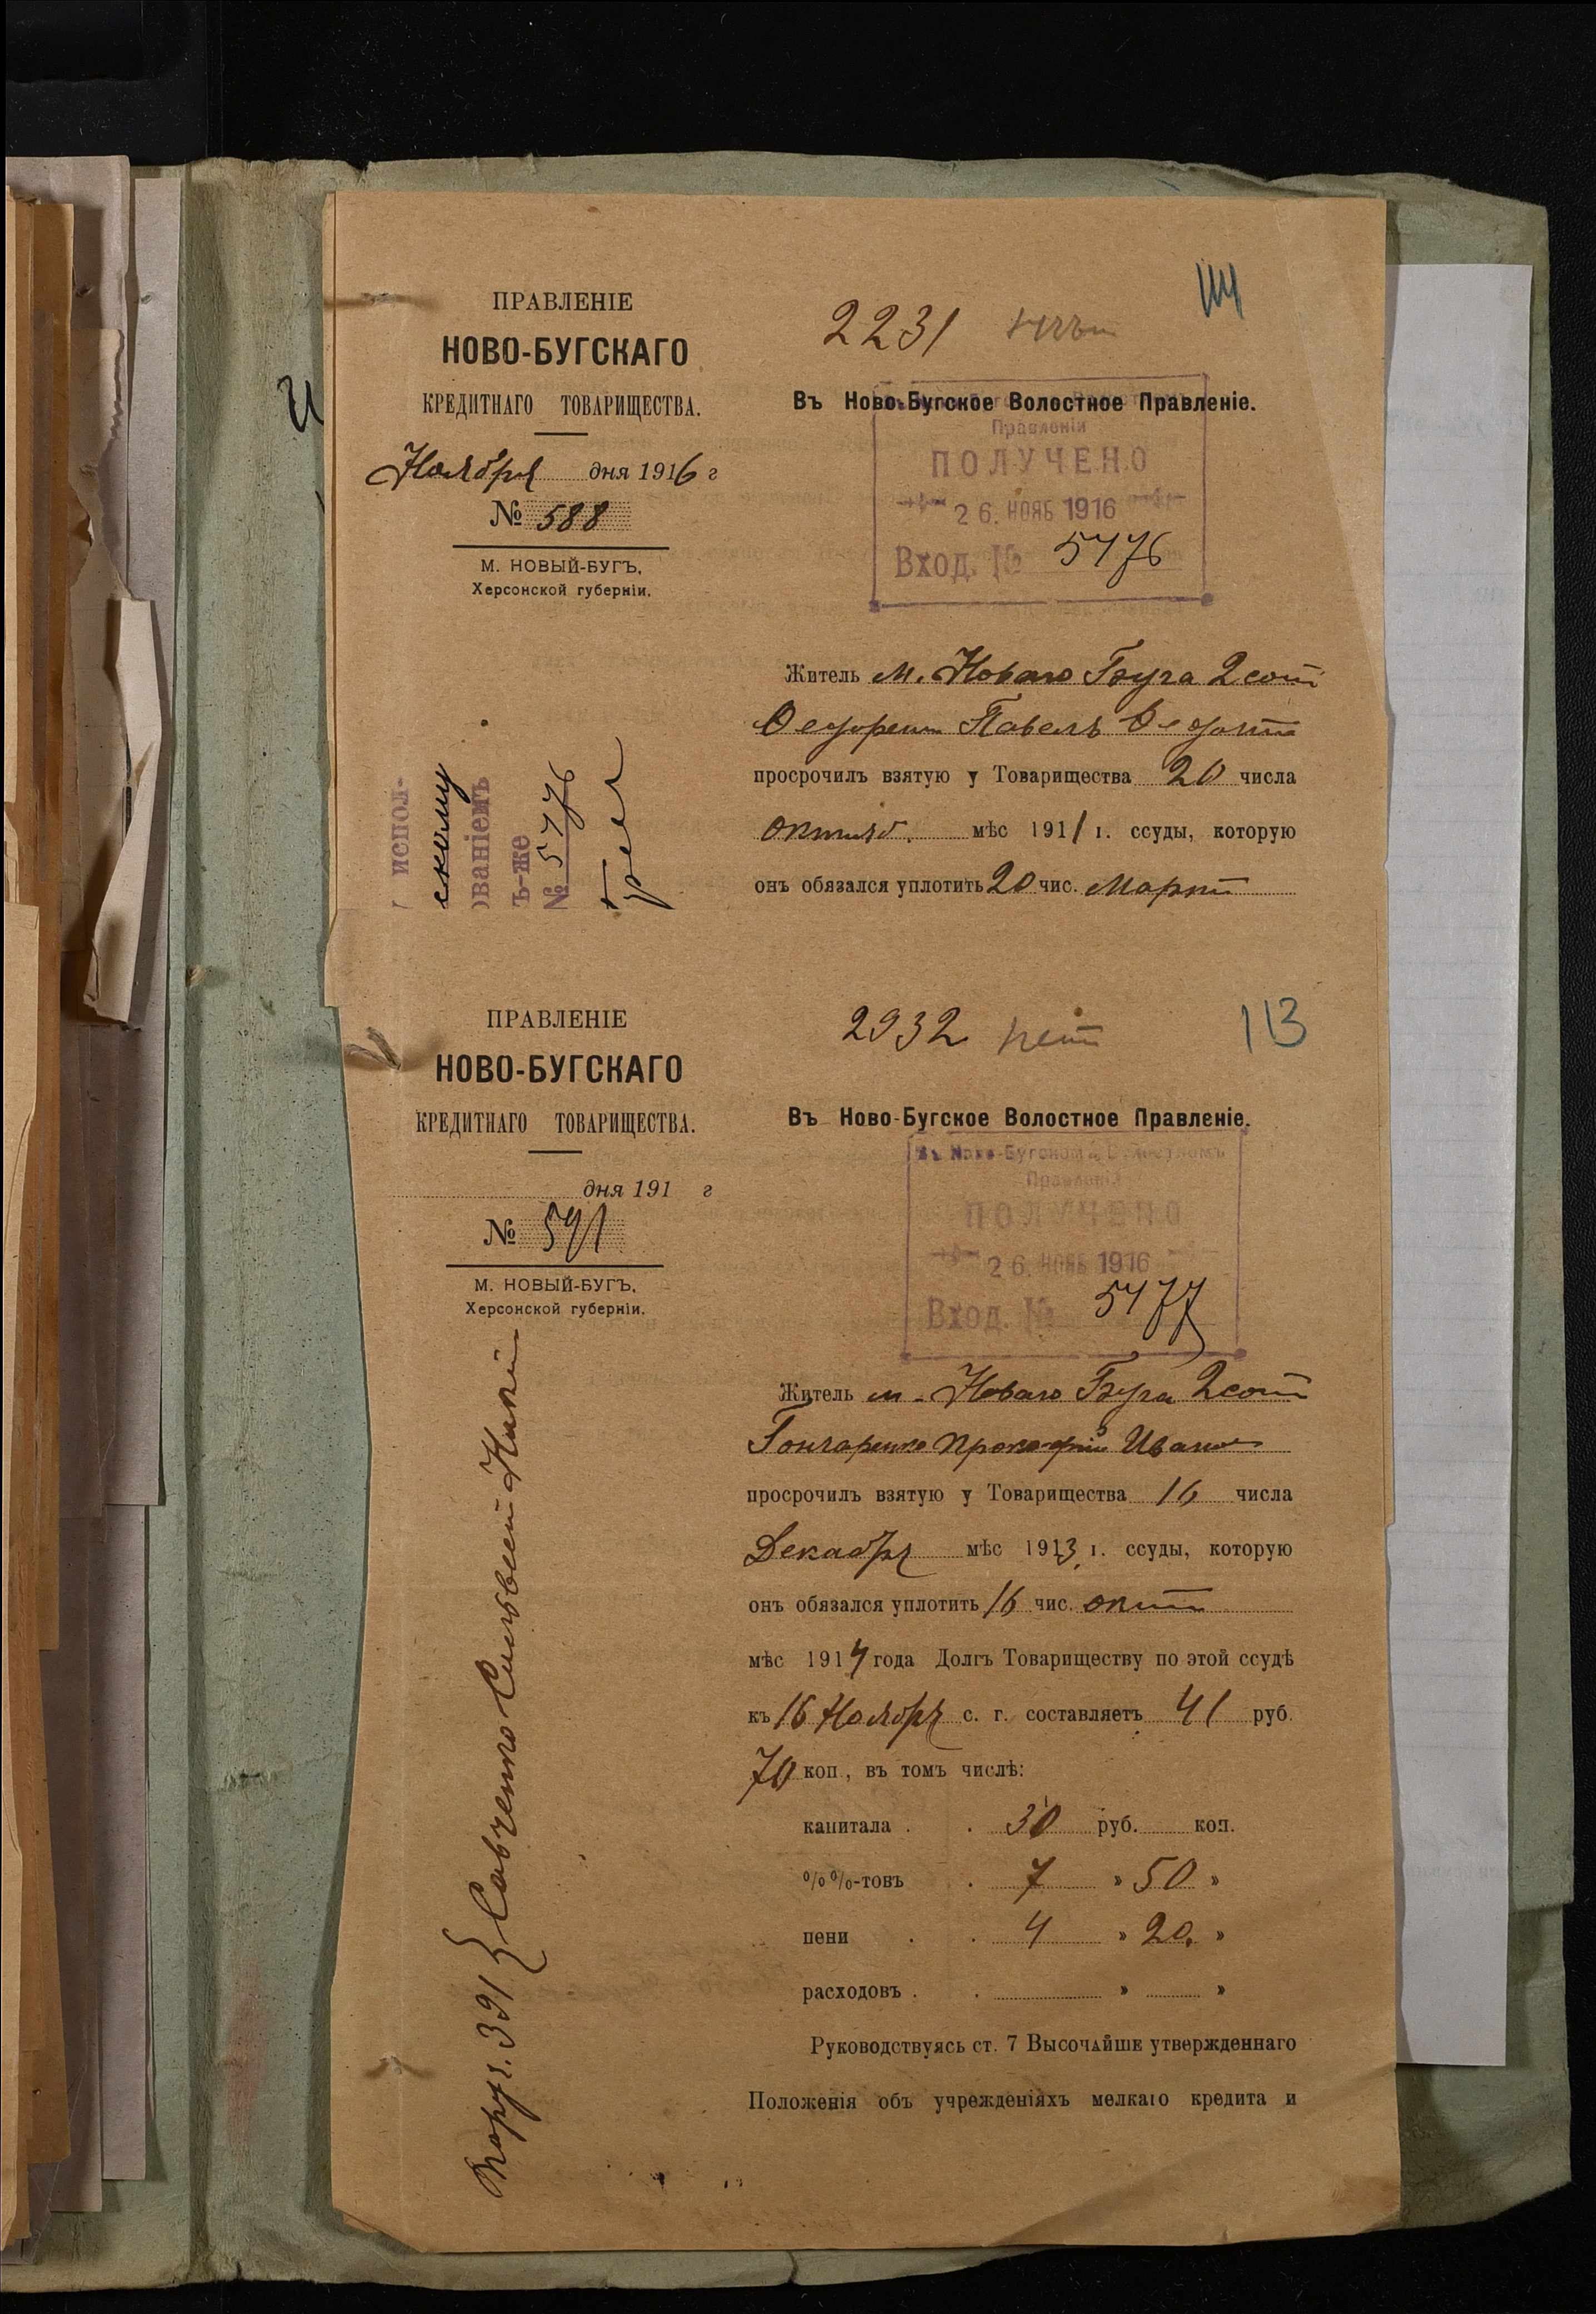 ПРАВЛЕНІЕ
НОВО-БУГСКАГО
КРЕДИТНАГО ТОВАРИЩЕСТВА.
Ноября дня 1916 г
№ 588
М. НОВЫЙ-БУГЪ,
Херсонской губерніи.
2231
Въ Ново-Бугское Волостное Правленіе.
Правленіи
ПОЛУЧЕНО
26. НОЯБ 1916
Вход. № 5476
Житель м. Новаго Буга 2 сот
Павелъ
просрочилъ взятую у Товарищества 20 числа
октяб. мѣс 1911 г. ссуды, которую
онъ обязался уплотить 20 чис. Март
испол-
скому
ованіемъ
ъ-же
№ 5476
ПРАВЛЕНІЕ
НОВО-БУГСКАГО
КРЕДИТНАГО ТОВАРИЩЕСТВА.
дня 191 г
№ 591
М. НОВЫЙ-БУГЪ,
Херсонской губерніи.
2932 нет
113
Въ Ново-Бугское Волостное Правленіе.
Въ Ново-Бугскомъ Волостномъ
Правленіи
ПОЛУЧЕНО
26. НОЯБ 1916
Вход. № 5477
Житель м. Новаго Буга 2 сот
Гончаренко Прокофий Иванов
просрочилъ взятую у Товарищества 16 числа
Декабря мѣс 1913 г. ссуды, которую
онъ обязался уплотить 16 чис. окт
мѣс 1914 года Долгъ Товариществу по этой ссудѣ
къ 16 Ноября с. г. составляетъ 41 руб.
70 коп., въ томъ числѣ:
капитала . . 30 руб. коп.
%%-товъ . 7 » 50 »
пени . . 4 » 20 »
расходовъ . . » »
Руководствуясь ст. 7 Высочайше утвержденнаго
Положенія объ учрежденіяхъ мелкаго кредита и
Поруч. 391 { Савченко